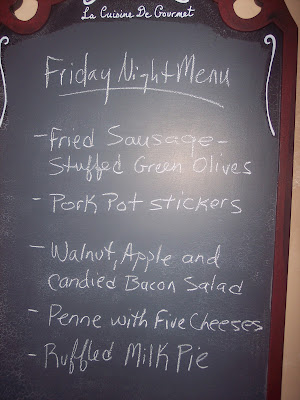 La Cuisine De Gourmet
Friday Night Menu
- Fried Sausage -
Stuffed Green Olives
- Pork Pot stickers
- Walnut, Apple and
Candied Bacon Salad
- Penne with Five Cheeses
- Ruffled Milk Pie